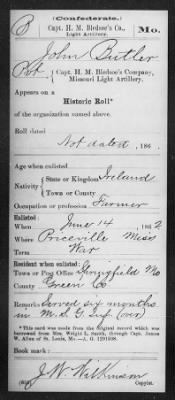 B
(Confederate.)
Capt. H. M. Bledsoe's Co.,
Light Artillery.
Mo.
John Butler
Pvt, Capt. H. M. Bledsoe's Company,
Missouri Light Artillery.
Appears on a
Historic Roll*
of the organization named above.
Roll dated
Not dated, 186 .
Age when enlisted
Nativity State or Kingdom Ireland
Town or County
Occupation or profession Farmer
Enlisted:
When June 14, 1862
Where Priceville Miss
War
Resident when enlisted:
Town or Post Office Springfield Mo
County Green Co
Remarks Served six months
in M. S. G Inf. (over)
*This card was made from the original record which was borrowed from Mrs. Wright L. Smith, through Capt. James W. Allen of St. Louis, Mo.—A. G. 1291938.
Book mark:
J. W. Wilkinson
Copyist.